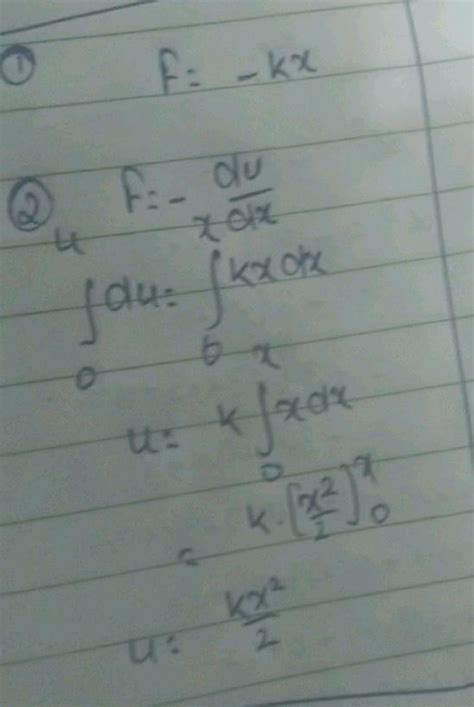 ① F = -kx
② F = - du/dx
∫₀ᵘ du = ∫₀ˣ kx dx
u = k ∫₀ˣ x dx
= k · [x²/2]₀ˣ
u = kx²/2